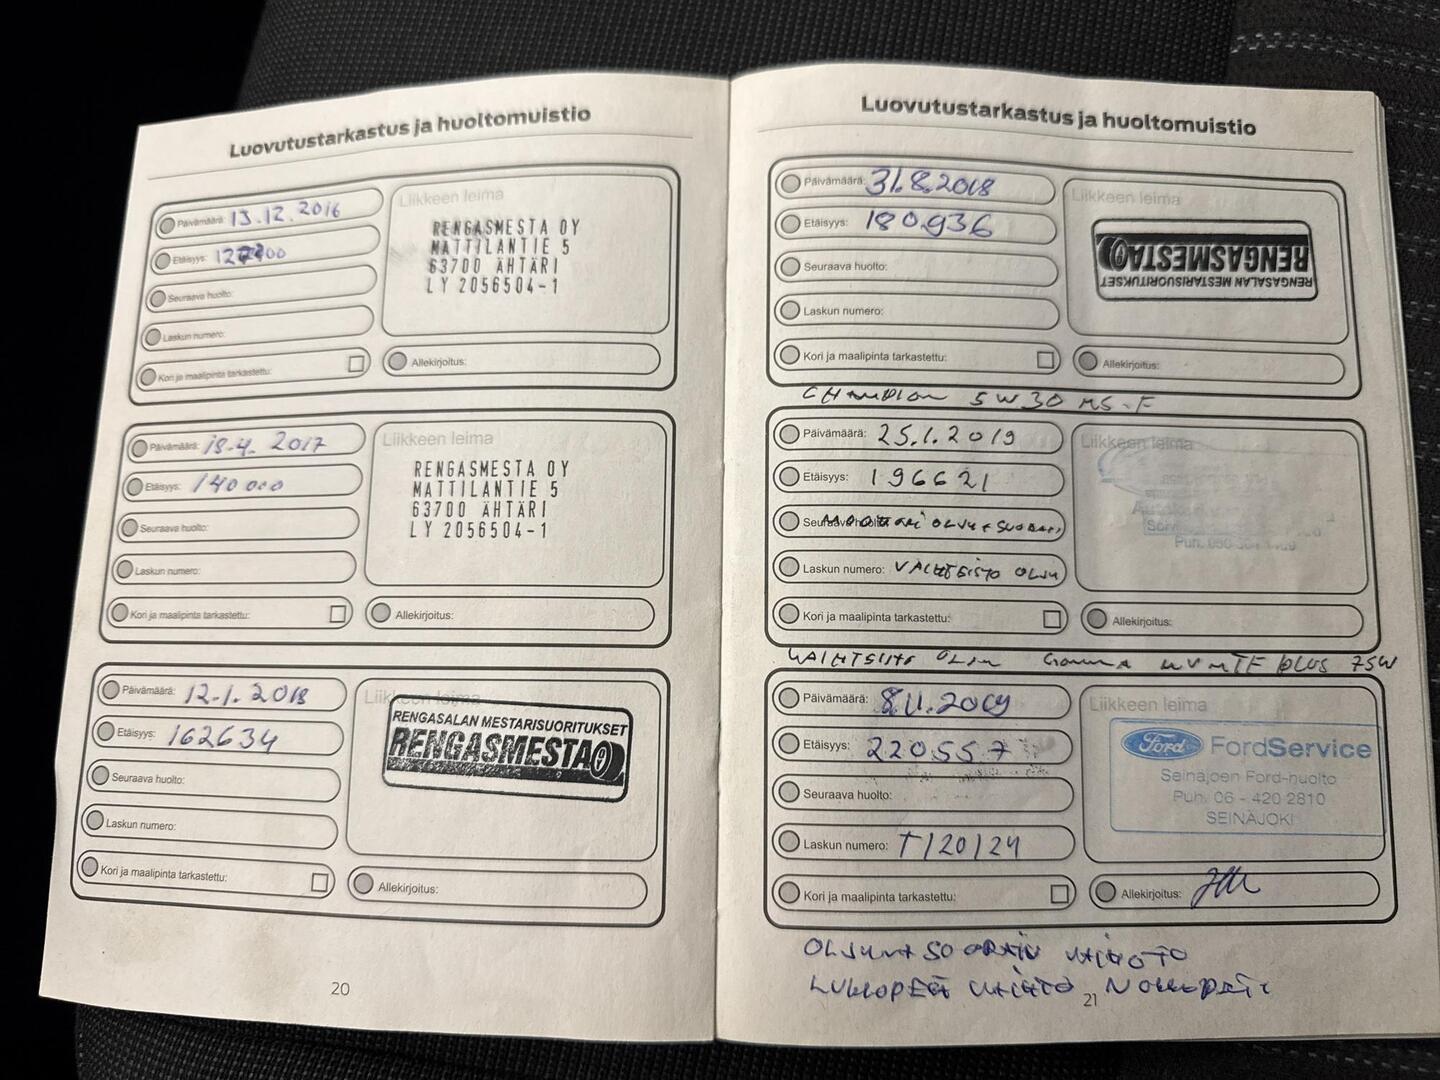 Luovutustarkastus ja huoltomuistio
Päivämäärä: 13.12.2016
Etäisyys:
Seuraava huolto:
Laskun numero:
Kori ja maalipinta tarkastettu:
Liikkeen leima
RENGASMESTA OY
MATTILANTIE 5
63700 ÄHTÄRI
LY 2056504-1
Allekirjoitus:
Päivämäärä: 18.4. 2017
Etäisyys: 140 000
Seuraava huolto:
Laskun numero:
Kori ja maalipinta tarkastettu:
Liikkeen leima
RENGASMESTA OY
MATTILANTIE 5
63700 ÄHTÄRI
LY 2056504-1
Allekirjoitus:
Päivämäärä: 12.1.2018
Etäisyys: 162634
Seuraava huolto:
Laskun numero:
Kori ja maalipinta tarkastettu:
Liikkeen leima
RENGASALAN MESTARISUORITUKSET
RENGASMESTA
Allekirjoitus:
20
Luovutustarkastus ja huoltomuistio
Päivämäärä: 31.8.2018
Etäisyys: 180936
Seuraava huolto:
Laskun numero:
Kori ja maalipinta tarkastettu:
Liikkeen leima
RENGASALAN MESTARISUORITUKSET
RENGASMESTA
Allekirjoitus:
CHAMPION 5W30 MS-F
Päivämäärä: 25.1.2019
Etäisyys: 196621
Seuraava huolto: MOOTTORI ÖLJY + SUODATIN
Laskun numero: VAIHTEISTO ÖLJY
Kori ja maalipinta tarkastettu:
Liikkeen leima
Allekirjoitus:
VAIHTEISTO ÖLJY MV MTF PLUS 75W
Päivämäärä: 8.11.2019
Etäisyys: 220557
Seuraava huolto:
Laskun numero: T120124
Kori ja maalipinta tarkastettu:
Liikkeen leima
Ford FordService
Seinäjoen Ford-huolto
Puh. 06 - 420 2810
SEINÄJOKI
Allekirjoitus:
VAIHTO
21